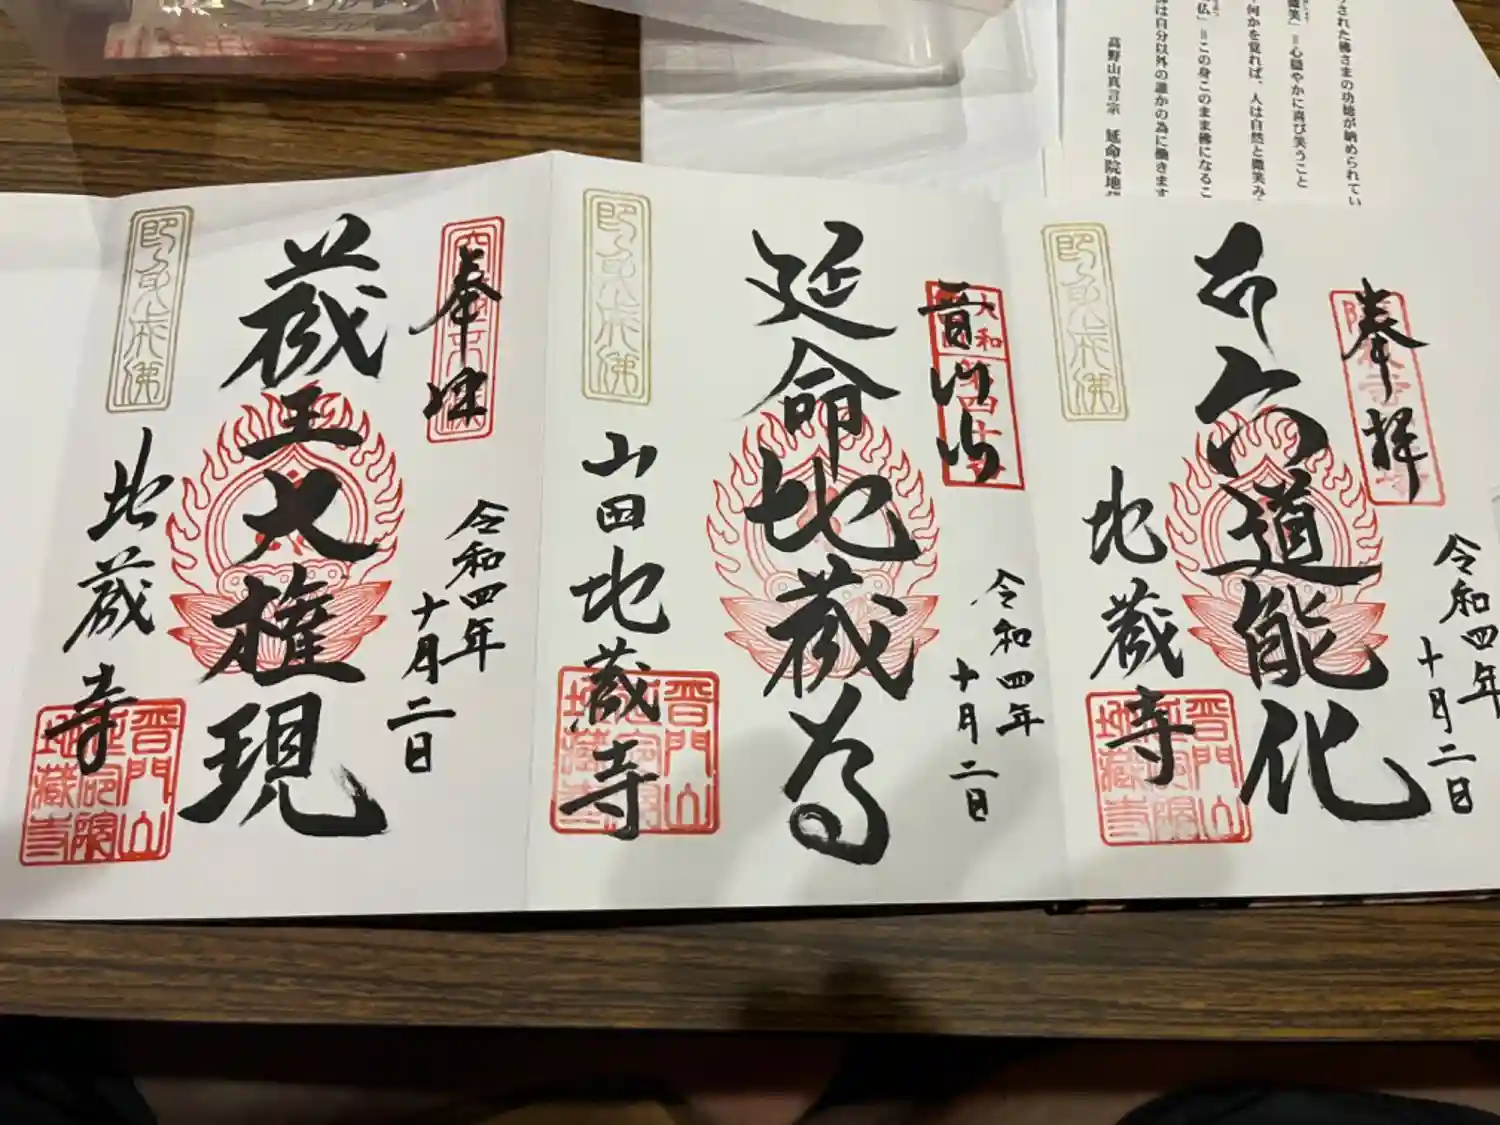 された佛さまの功徳が納められてい
微笑」＝心穏やかに喜び笑うこと
何かを覚れば、人は自然と微笑み
仏」＝この身このまま佛になるこ
は自分以外の誰かの為に働きます
高野山真言宗 延命院地
奉拝
令和四年
十月二日
六道能化
地蔵寺
普門山
延命院
地蔵寺
大和
令和四年
十月二日
延命地蔵尊
山田地蔵寺
普門山
延命院
地蔵寺
奉拝
令和四年
十月二日
蔵王大権現
地蔵寺
普門山
延命院
地蔵寺